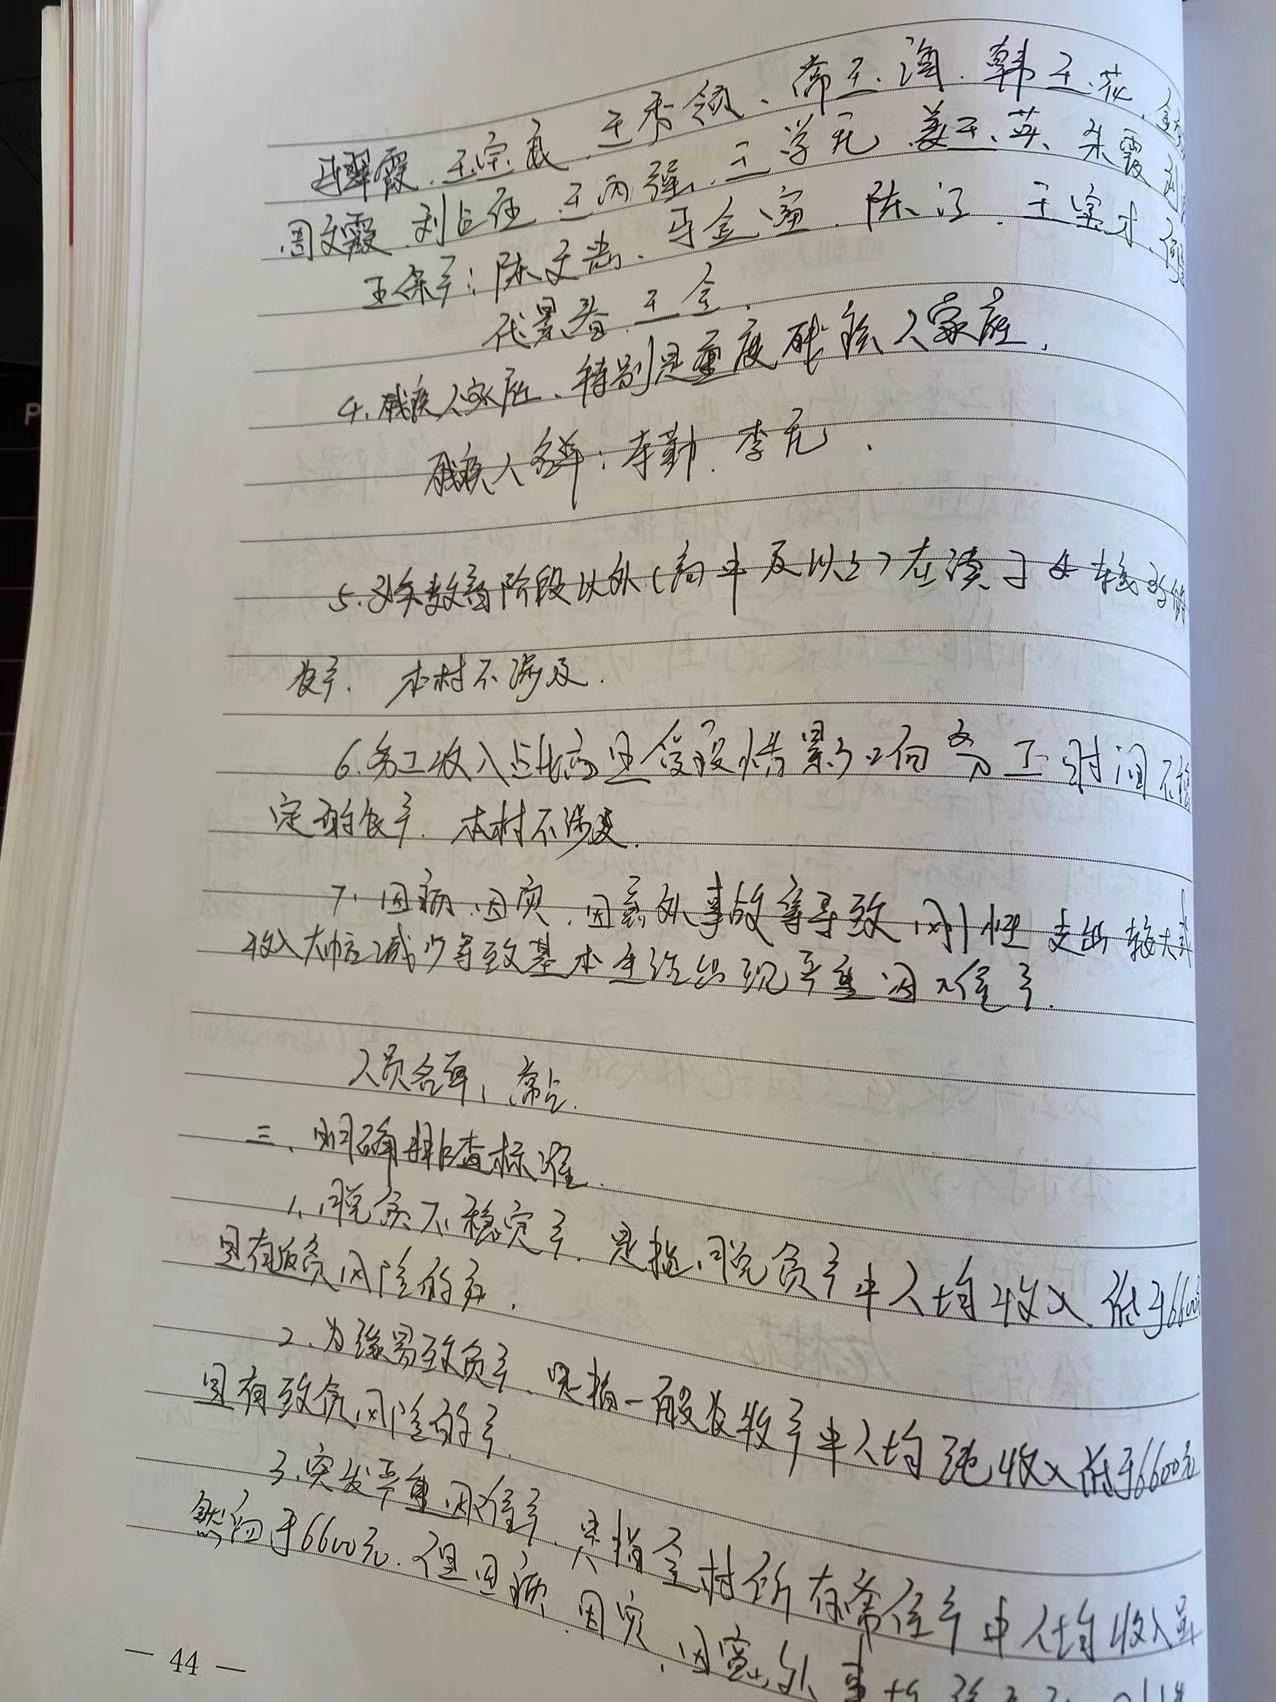 马翠霞、王宗武、王秀领、常玉海、韩玉花、
周文霞、刘占征、王丙强、王学礼、姜玉英、朱霞、刘
五保户：陈文忠、马金宝、陈江、于宝才、何
代景春、王全、
4、残疾人家庭、特别是重度残疾人家庭、
残疾人名单：李勤、李元、
5、义务教育阶段以外（高中及以上）在读子女较多的
农户、本村不涉及、
6、务工收入占比高且受疫情影响务工时间不稳
定的农户、本村不涉及、
7、因病、因灾、因意外事故等导致刚性支出较大或
收入大幅减少等致基本生活出现严重困难户、
人员名单：常占、
三、明确排查标准、
1、脱贫不稳定户、是指脱贫户中人均收入低于6600元
且有返贫风险的户、
2、为缘易致贫户、是指一般农牧户中人均纯收入低于6600元
且有致贫风险的户、
3、突发严重困难户、是指全村所有常住户中人均收入虽
然高于6600元、但因病、因灾、因意外事故
— 44 —